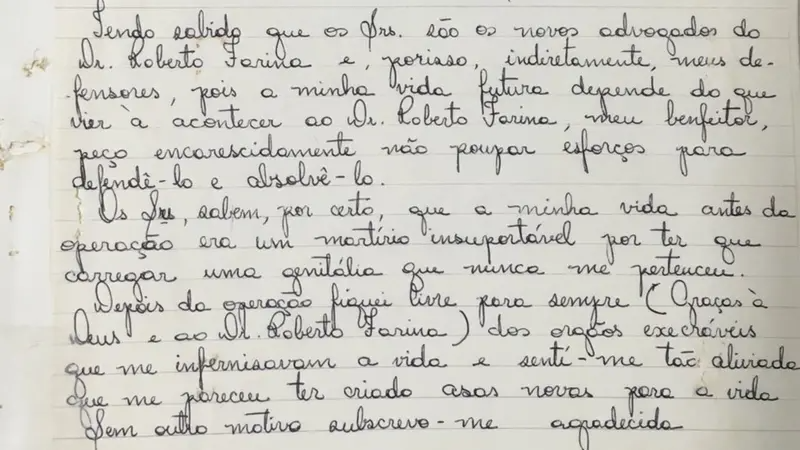 Tendo sabido que os Srs. são os novos advogados do
Dr. Roberto Farina e, porisso, indiretamente, meus de-
fensores, pois a minha vida futura depende do que
vier à acontecer ao Dr. Roberto Farina, meu benfeitor,
peço encarescidamente não poupar esforços para
defendê-lo e absolvê-lo.
Os Srs, sabem, por certo, que a minha vida antes da
operação era um martírio insuportável por ter que
carregar uma genitália que nunca me pertenceu.
Depois da operação fiquei livre para sempre (Graças à
Deus e ao Dr. Roberto Farina) dos orgãos execráveis
que me infernisavam a vida e sentí-me tão aliviada
que me pareceu ter criado asas novas para a vida
Sem outro motivo subscrevo-me agradecida